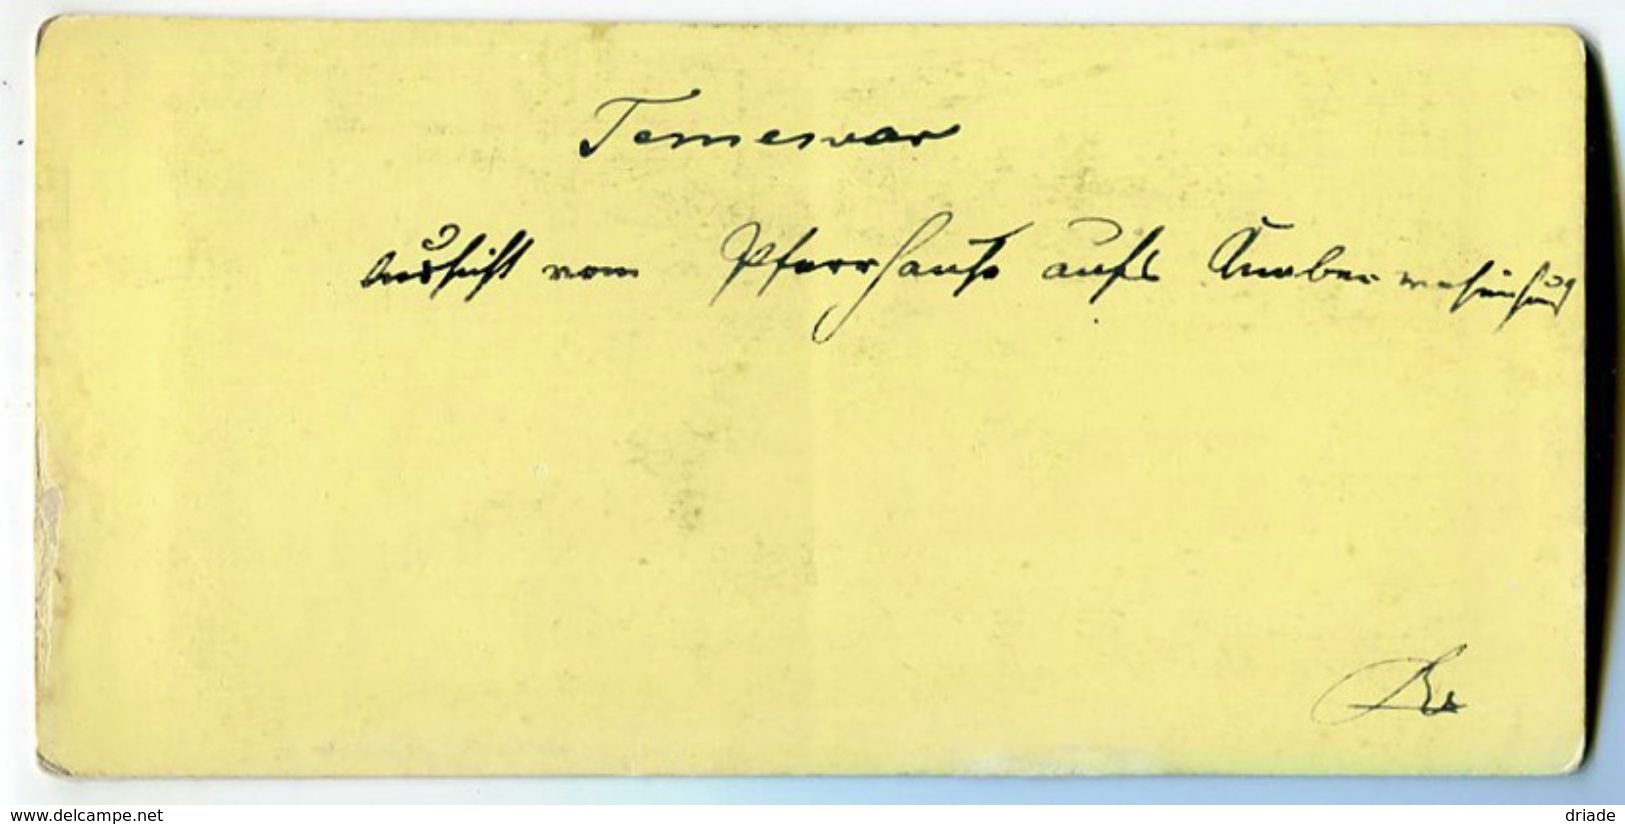 Temeswar
Aussicht vom Pfarrhause aufs Knaben
www.delcampe.net
driade